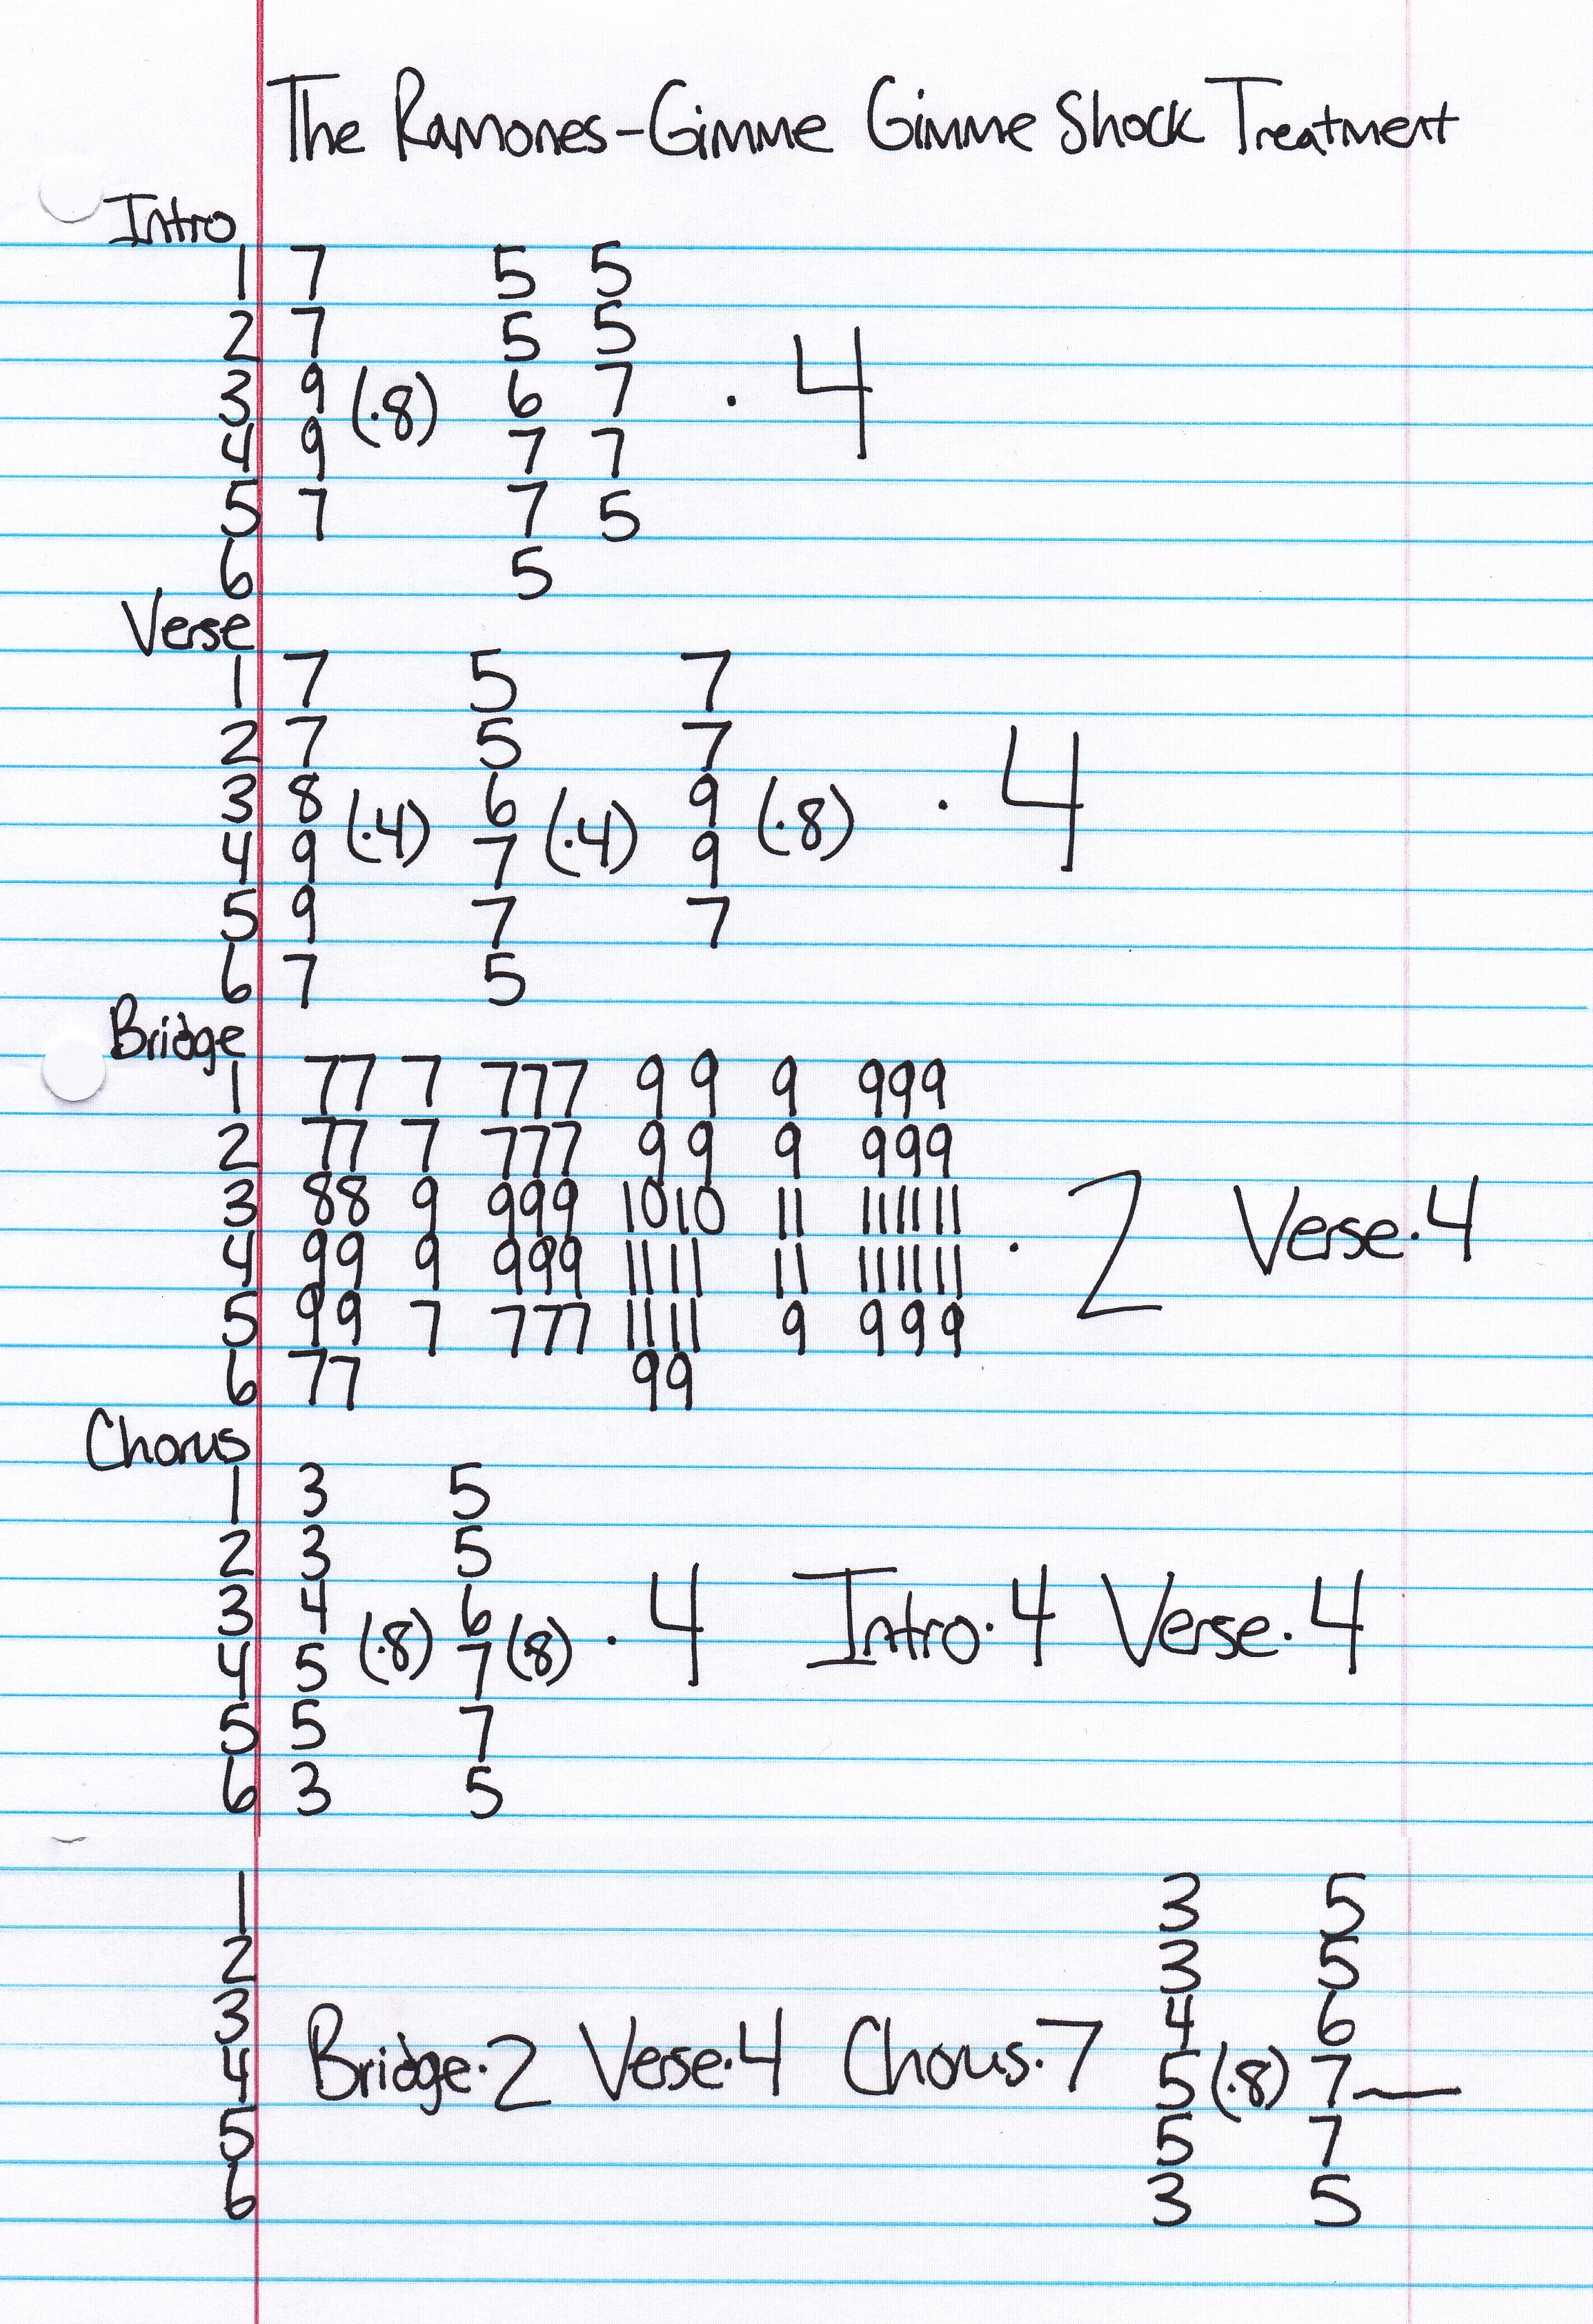 The Ramones-Gimme Gimme Shock Treatment
Intro
1 7 5 5
2 7 5 5
3 9 (·8) 6 7 · 4
4 9 7 7
5 7 7 5
6 5
Verse
1 7 5 7
2 7 5 7
3 8 (·4) 6 (·4) 9 (·8) · 4
4 9 7 9
5 9 7 7
6 7 5
Bridge
1 77 7 777 99 9 999
2 77 7 777 99 9 999
3 88 9 999 1010 11 111111 · 2 Verse·4
4 99 9 999 1111 11 111111
5 99 7 777 1111 9 999
6 77 99
Chorus
1 3 5
2 3 5
3 4 (·8) 6 (·8) · 4 Intro·4 Verse·4
4 5 7
5 5 7
6 3 5
1 3 5
2 3 5
3 4 6
4 Bridge·2 Verse·4 Chorus·7 5 (·8) 7—
5 5 7
6 3 5